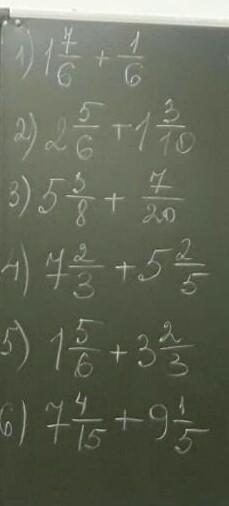 1) 1 7/6 + 1/6
2) 2 5/6 + 1 3/10
3) 5 3/8 + 7/20
4) 7 2/3 + 5 2/5
5) 1 5/6 + 3 2/3
6) 7 4/15 + 9 1/5